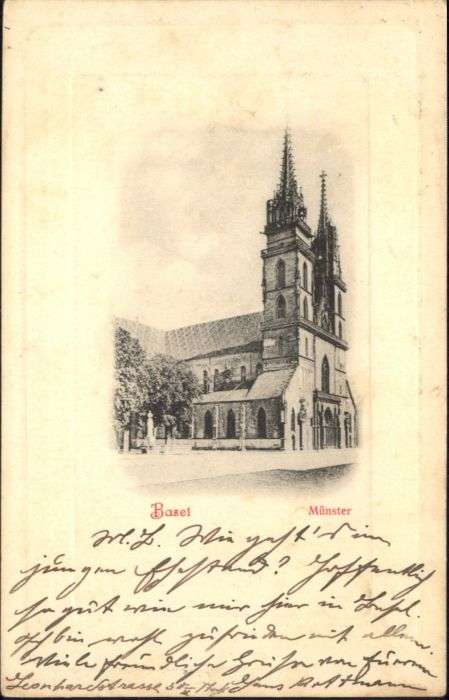 Basel
Münster
M. L. Wie geht's im
jungen Ehestand? Hoffentlich
so gut wie mir hier in Basel.
Ich bin wohl zufrieden mit allem.
Viele freundliche Grüsse von Eurem
Leonhardstrasse Hans